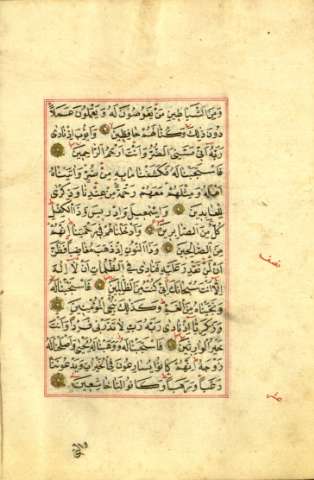 وَمِنَ الشَّيَاطِينِ مَنْ يَغُوصُونَ لَهُ وَيَعْمَلُونَ عَمَلًا
دُونَ ذَلِكَ وَكُنَّا لَهُمْ حَافِظِينَ وَأَيُّوبَ إِذْ نَادَى
رَبَّهُ أَنِّي مَسَّنِيَ الضُّرُّ وَأَنْتَ أَرْحَمُ الرَّاحِمِينَ
فَاسْتَجَبْنَا لَهُ فَكَشَفْنَا مَا بِهِ مِنْ ضُرٍّ وَآتَيْنَاهُ
أَهْلَهُ وَمِثْلَهُمْ مَعَهُمْ رَحْمَةً مِنْ عِنْدِنَا وَذِكْرَى
لِلْعَابِدِينَ وَإِسْمَعِيلَ وَإِدْرِيسَ وَذَا الْكِفْلِ
كُلٌّ مِنَ الصَّابِرِينَ وَأَدْخَلْنَاهُمْ فِي رَحْمَتِنَا إِنَّهُمْ
مِنَ الصَّالِحِينَ وَذَا النُّونِ إِذْ ذَهَبَ مُغَاضِبًا فَظَنَّ
أَنْ لَنْ نَقْدِرَ عَلَيْهِ فَنَادَى فِي الظُّلُمَاتِ أَنْ لَا إِلَهَ
إِلَّا أَنْتَ سُبْحَانَكَ إِنِّي كُنْتُ مِنَ الظَّالِمِينَ فَاسْتَجَبْنَا لَهُ
وَنَجَّيْنَاهُ مِنَ الْغَمِّ وَكَذَلِكَ نُنْجِي الْمُؤْمِنِينَ
وَزَكَرِيَّا إِذْ نَادَى رَبَّهُ رَبِّ لَا تَذَرْنِي فَرْدًا وَأَنْتَ
خَيْرُ الْوَارِثِينَ فَاسْتَجَبْنَا لَهُ وَوَهَبْنَا لَهُ يَحْيَى وَأَصْلَحْنَا لَهُ
زَوْجَهُ إِنَّهُمْ كَانُوا يُسَارِعُونَ فِي الْخَيْرَاتِ وَيَدْعُونَنَا
رَغَبًا وَرَهَبًا وَكَانُوا لَنَا خَاشِعِينَ
نصف